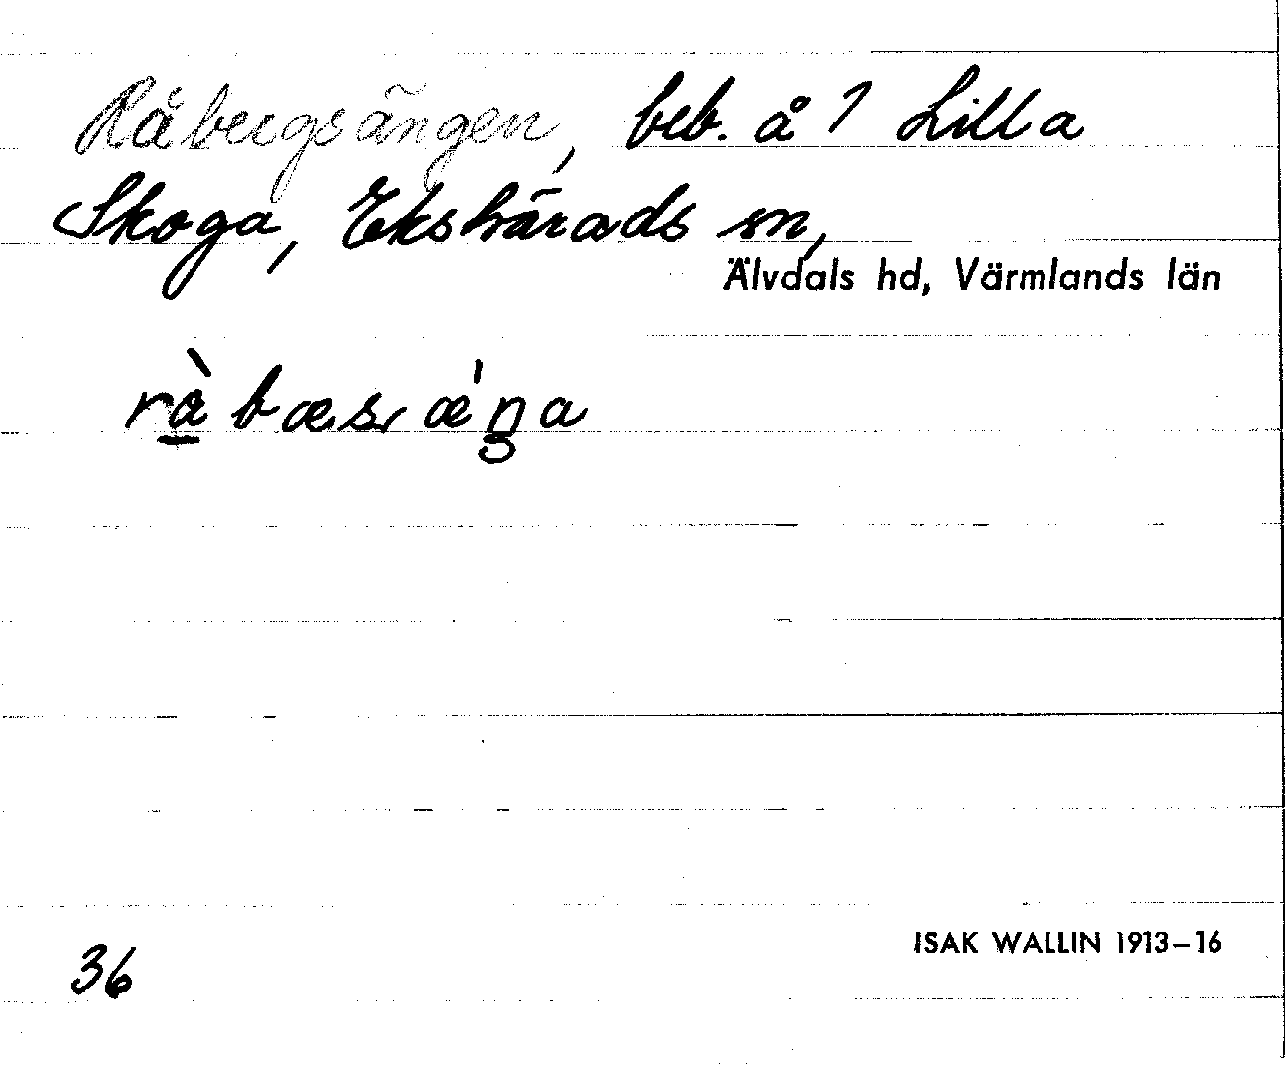 Råbergsängen, beb. å 1 Lilla
Skoga, Ekshärads sn,
Älvdals hd, Värmlands län
rå̀bæsæ̀ŋa
36
ISAK WALLIN 1913–16